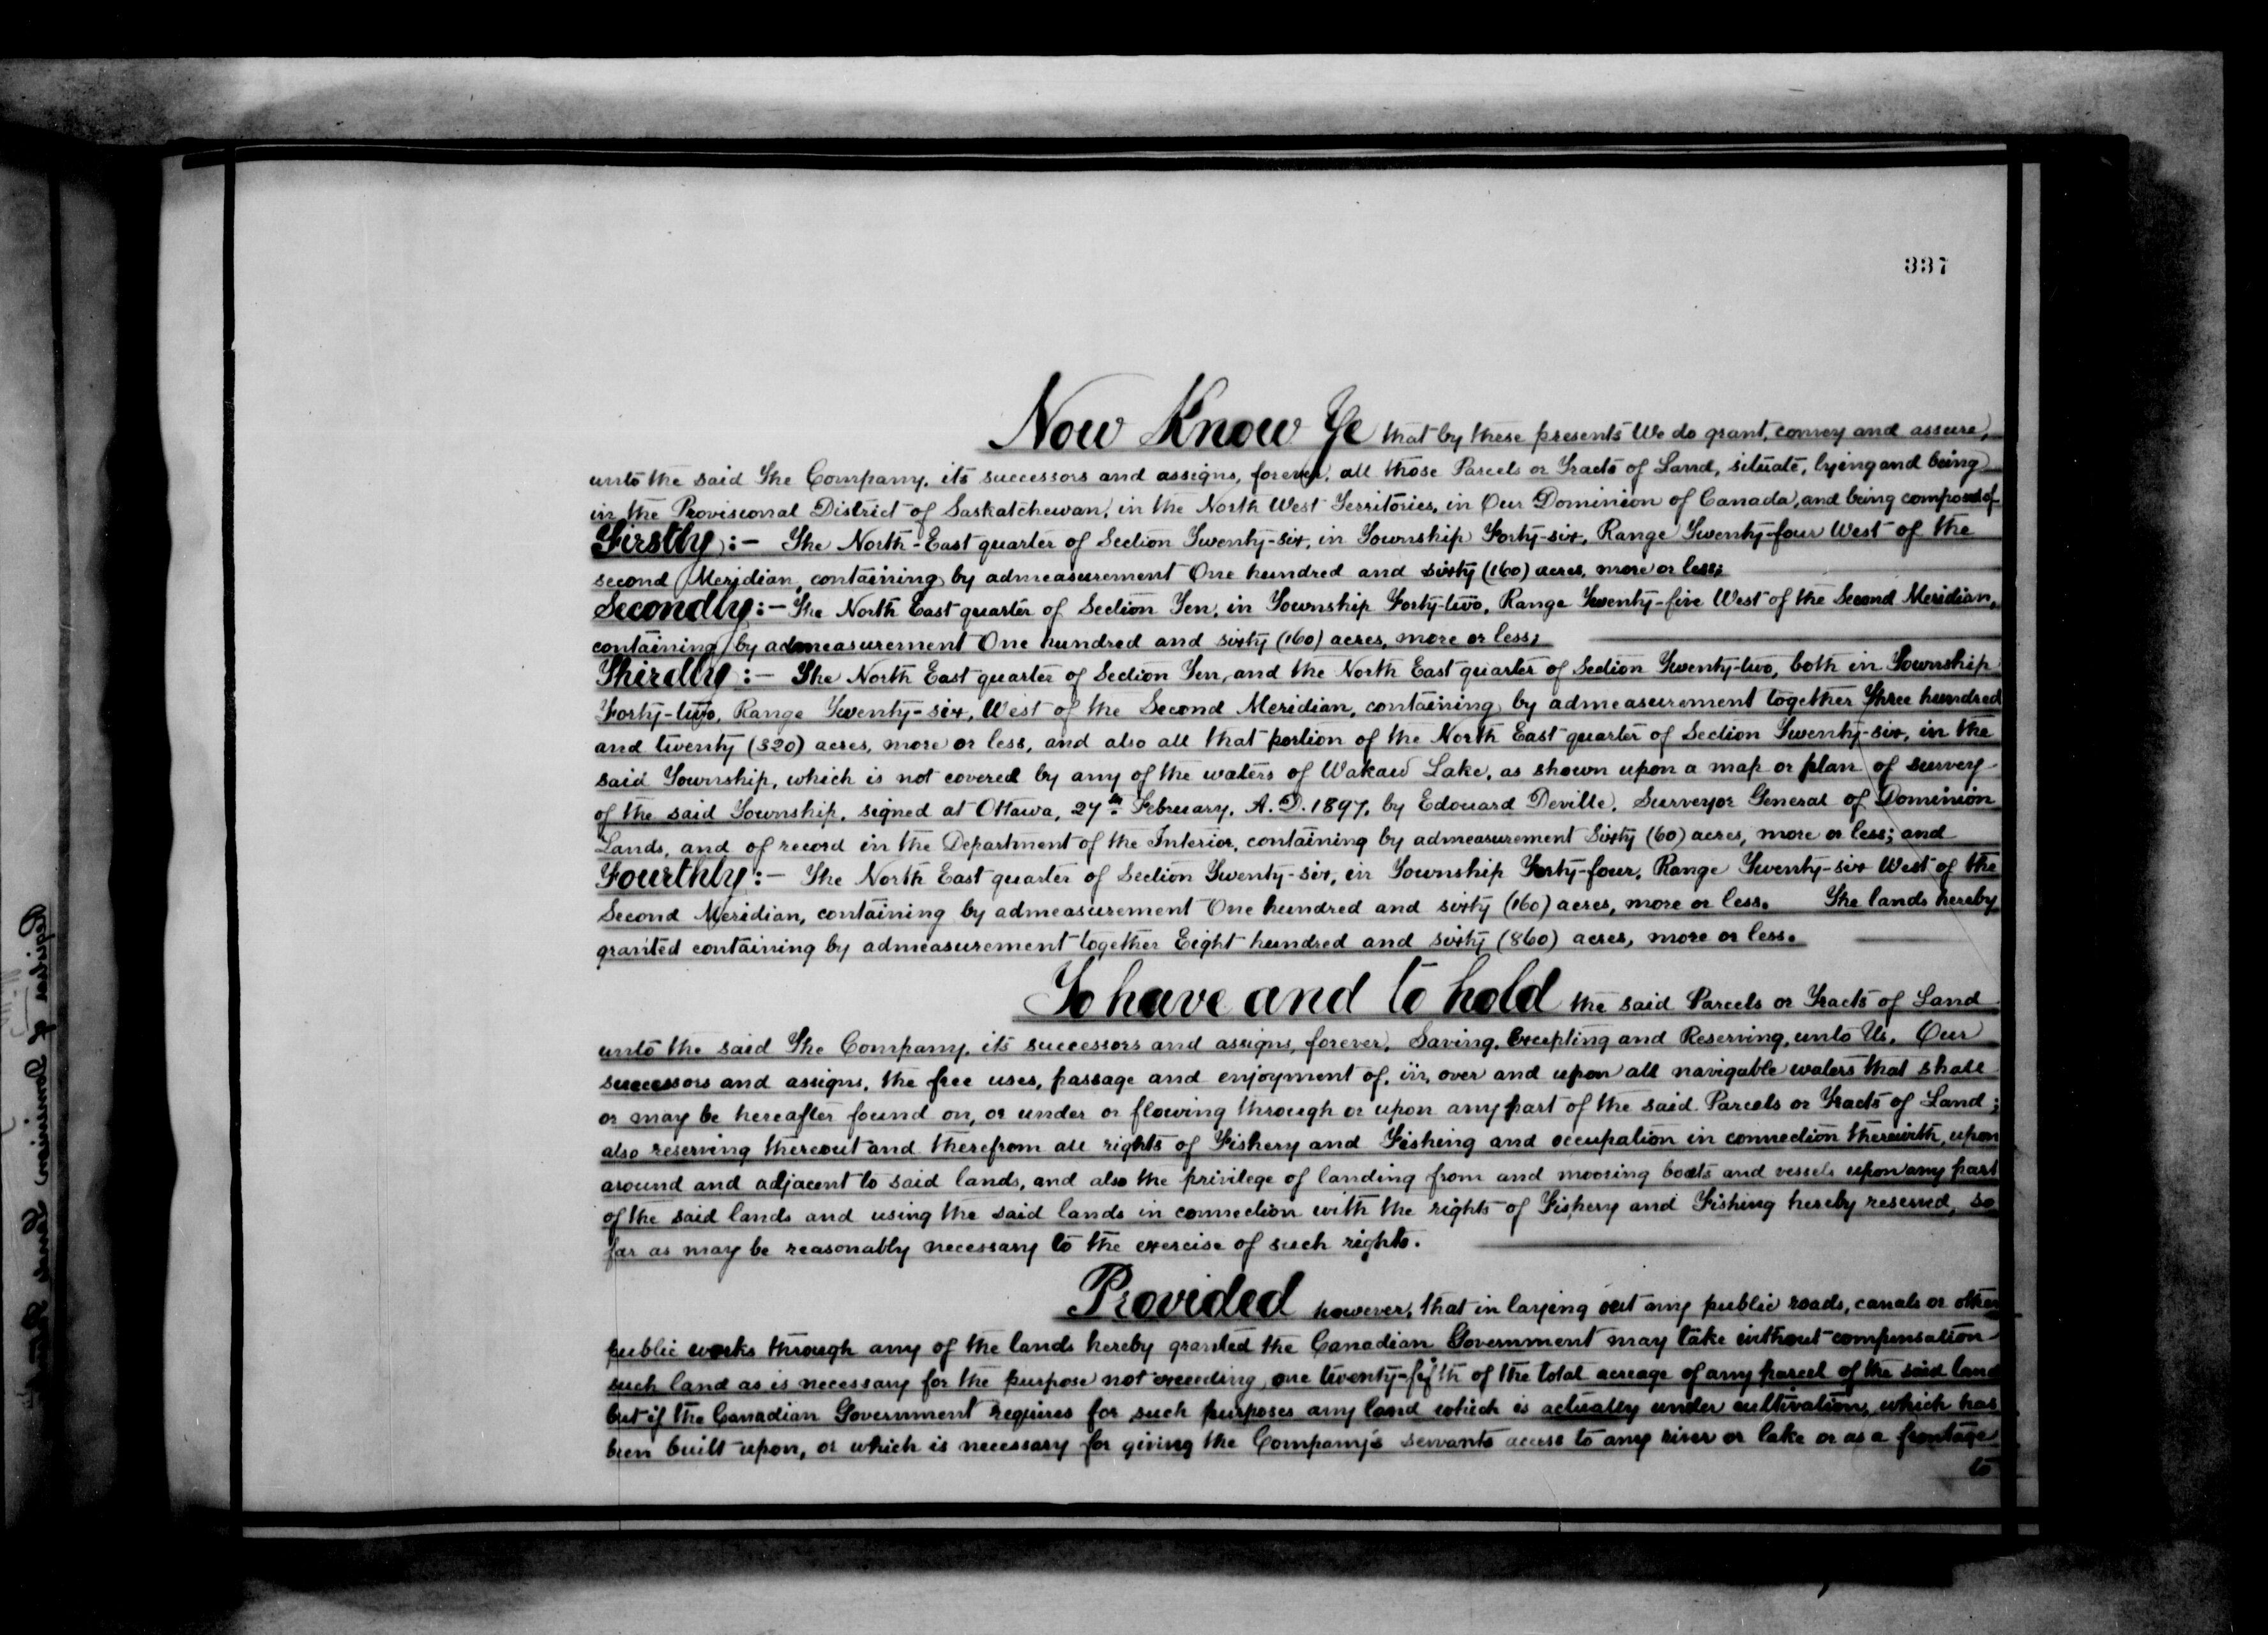 337
Now Know Ye that by these presents We do grant, convey and assure,
unto the said The Company, its successors and assigns, forever, all those Parcels or Tracts of Land, situate, lying and being
in the Provisional District of Saskatchewan, in the North West Territories, in Our Dominion of Canada, and being composed of
Firstly:- The North-East quarter of Section Twenty-six, in Township Forty-six, Range Twenty-four West of the
second Meridian, containing by admeasurement One hundred and sixty (160) acres, more or less;
Secondly:- The North East quarter of Section Ten, in Township Forty-two, Range Twenty-five West of the Second Meridian,
containing by admeasurement One hundred and sixty (160) acres, more or less;
Thirdly:- The North East quarter of Section Ten, and the North East quarter of Section Twenty-two, both in Township
Forty-two, Range Twenty-six, West of the Second Meridian, containing by admeasurement together Three hundred
and twenty (320) acres, more or less, and also all that portion of the North East quarter of Section Twenty-six, in the
said Township, which is not covered by any of the waters of Wakaw Lake, as shown upon a map or plan of survey
of the said Township, signed at Ottawa, 27th February, A.D. 1897, by Edouard Deville, Surveyor General of Dominion
Lands, and of record in the Department of the Interior, containing by admeasurement Sixty (60) acres, more or less; and
Fourthly:- The North East quarter of Section Twenty-six, in Township Forty-four, Range Twenty-six West of the
Second Meridian, containing by admeasurement One hundred and sixty (160) acres, more or less. The lands hereby
granted containing by admeasurement together Eight hundred and sixty (860) acres, more or less.
To have and to hold the said Parcels or Tracts of Land
unto the said The Company, its successors and assigns, forever, Saving, Excepting and Reserving, unto Us, Our
successors and assigns, the free uses, passage and enjoyment of, in, over and upon all navigable waters that shall
or may be hereafter found on, or under or flowing through or upon any part of the said Parcels or Tracts of Land;
also reserving thereout and therefrom all rights of Fishery and Fishing and occupation in connection therewith, upon
around and adjacent to said lands, and also the privilege of landing from and mooring boats and vessels upon any part
of the said lands and using the said lands in connection with the rights of Fishery and Fishing hereby reserved, so
far as may be reasonably necessary to the exercise of such rights.
Provided however, that in laying out any public roads, canals or other
public works through any of the lands hereby granted the Canadian Government may take without compensation
such land as is necessary for the purpose not exceeding one twenty-fifth of the total acreage of any parcel of the said land
but if the Canadian Government requires for such purposes any land which is actually under cultivation, which has
been built upon, or which is necessary for giving the Company's servants access to any river or lake or as a frontage
to